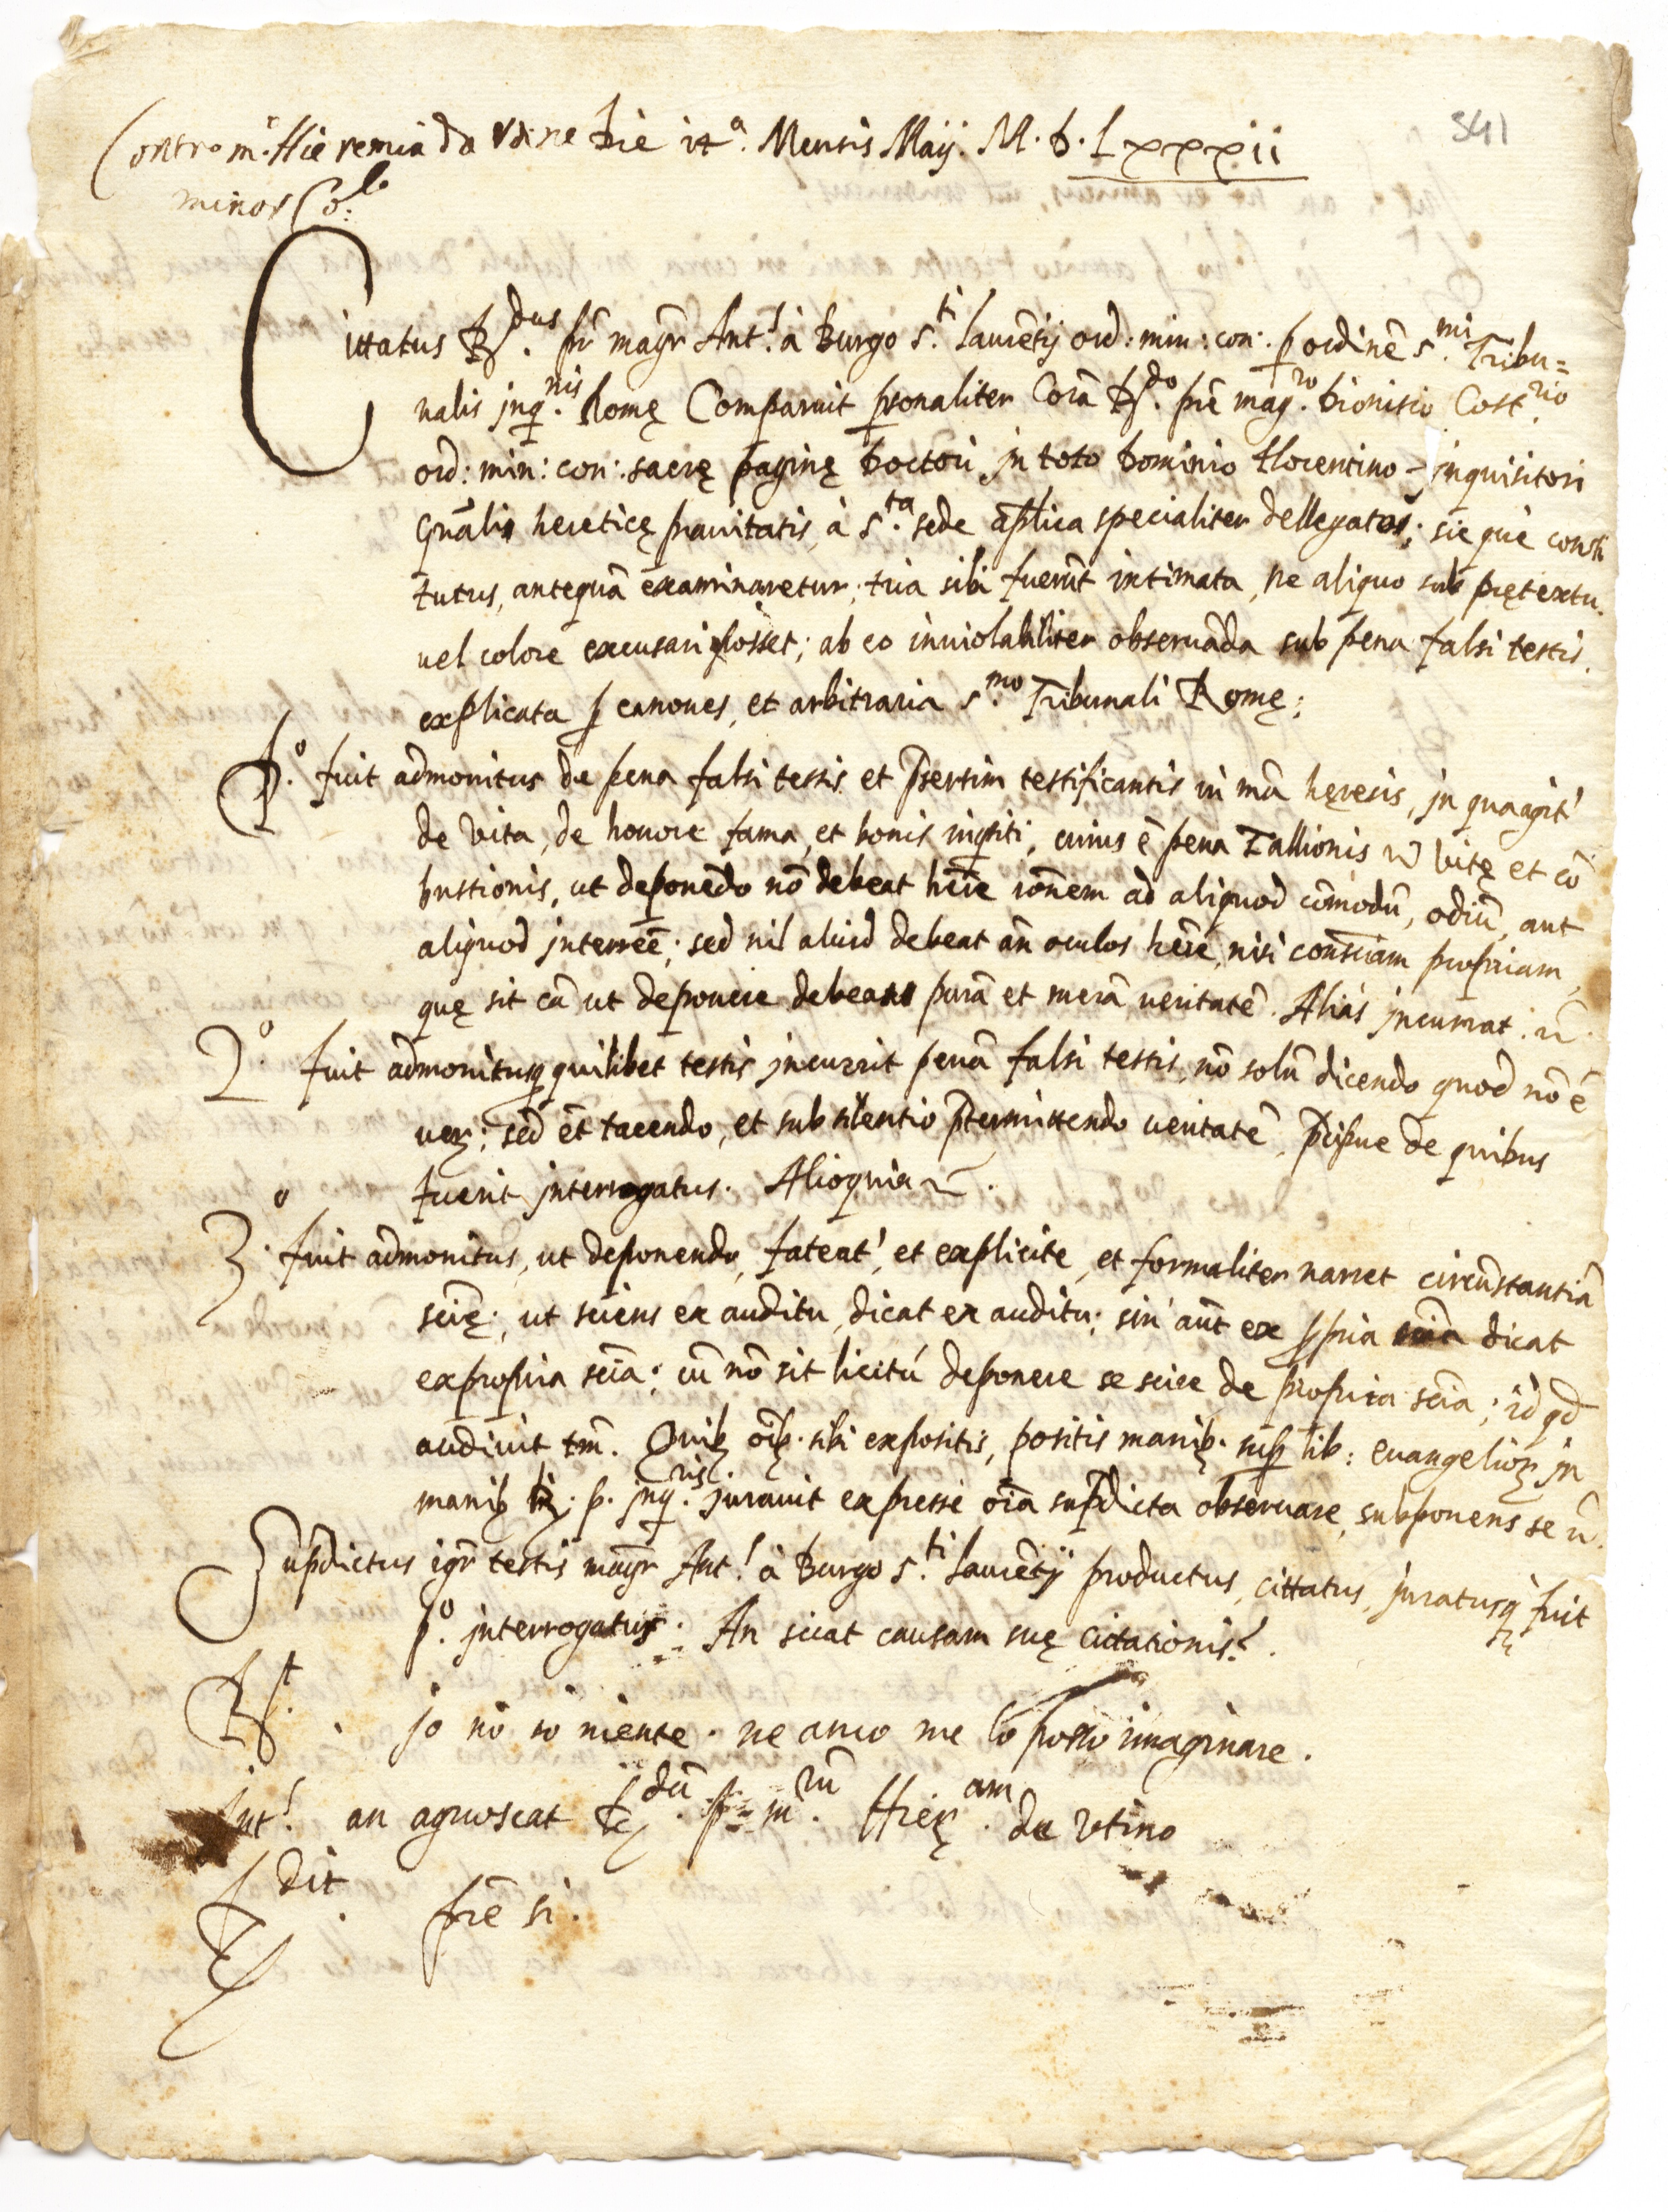 541
Contro m.ͬ Hieremia da Vdine Die 17.ª Mensis Maij. M. D. Lxxxii
minor Cō:ˡᵉ
Cittatus R.dus fr̄ magr̄ Ant.' à Burgo S.ti Laurētij ord: min: con: ꝑ ordinē S.mi Tribu=
nalis jnq.nis Romę Comparuit ꝑsonaliter Corā R.do prē mag.ro Dionisio Cost.rio
ord: min: con: sacrę paginę Doctori jn toto Dominio Florentino jnquisitori
gn̄ali hereticę prauitatis, à S.ta sede ap̄lica specialiter dellegatos; sic que consti
tutus, antequā examinaretur; tria sibi fuerūt intimata, ne aliquo sub prętextu
uel colore excusari posset; ab eo inuiolabiliter obseruāda sub pena falsi testis
explicata ꝑ canones, et arbitraria S.mo Tribunali Romę;
P.º fuit admonitus de pena falsi testis et p̄sertim testificantis in mā hęresis, jn qua agit'
de vita, de honore fama, et bonis inq̄siti, cuius ē pena Tallionis vz vitę et cō
bustionis, ut deponēdo nō debeat hēre rōnem ad aliquod cōmodū, odiū, aut
aliquod jnterēe; sed nil aliud debeat an̄ oculos hēre, nisi consciam propriam,
quę sit cā ut deponere debeat purā et merā ueritatē. Aliàs jncurrat
2.º fuit admonitus ꝙ quilibet testis jncurrit penā falsi testis, nō solū dicendo quod nō ē
uerꝝ; sed ēt tacendo, et sub silentio p̄termittendo ueritatē, p̄cipue de quibus
fuerit jnterrogatus. Alioquin
3.º fuit admonitus, ut deponendo, fateat', et explicite, et formaliter narret circūstantiā
scię; ut sciens ex auditu, dicat ex auditu; sin aūt ex ꝓpria dicat
ex propria sciā; cū nō sit licitū deponere se scire de propria sciā; id qd
audiuit tm̄. Quibꝫ oībꝫ. sibi expositis, positis manibꝫ. suꝑ lib: euangelioꝝ jn
manibꝫ p. jnq.ris jurauit expresse oīa sup̄dicta obseruare, subponens se
Sup̄dictus igr̄ testis magr̄ Ant.' à Burgo S.ti Laurētij productus, cittatus, juratusqꝫ fuit
p.º jnterrogatus: An sciat causam suę cittationis?.
R.t jo nō so niente. ne anco me lo posso imaginare.
Jnt.' an agnoscat R.dū p. m.rū Hierę.am de Vtino
R.dit frē si.